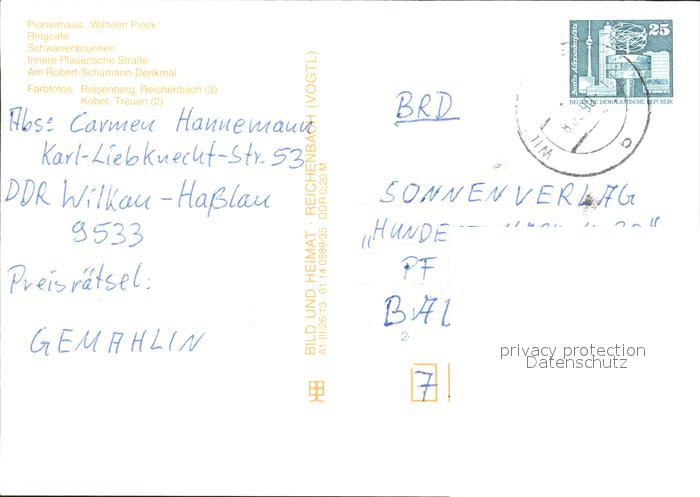 Pionierhaus „Wilhelm Pieck"
Ringcafe
Schwanenbrunnen
Innere Plauensche Straße
Am Robert-Schumann-Denkmal
Farbfotos: Reisenberg, Reichenbach (3)
Kober, Treuen (2)
Abs: Carmen Hannemann
Karl-Liebknecht-Str. 53
DDR Wilkau-Haßlau
9533
Preisrätsel:
GEMAHLIN
BILD UND HEIMAT · REICHENBACH (VOGTL)
A1/III/26/13 01 14 0589/35 DDR 0,20 M
Berlin, Alexanderplatz
25
DEUTSCHE DEMOKRATISCHE REPUBLIK
WIL
BRD
SONNENVERLAG
„HUNDE
PF
BAD
2
7
privacy protection
Datenschutz